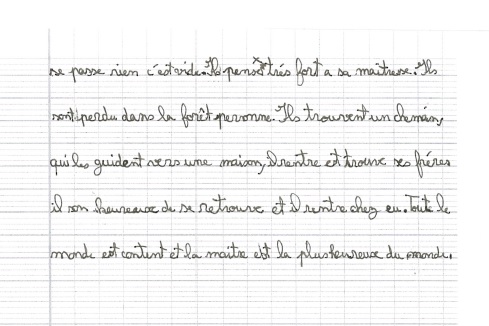 se passe rien c'est vide. Il pense très fort a sa maitresse. Ils
sont perdu dans la forêt personne. Ils trouvent un chemin,
qui les guident vers une maison, il rentre est trouve ses fréres
il son heureaux de se retrouve et il rentre chez eu. Toute le
monde est content et la maitre est la plus heureux du monde.